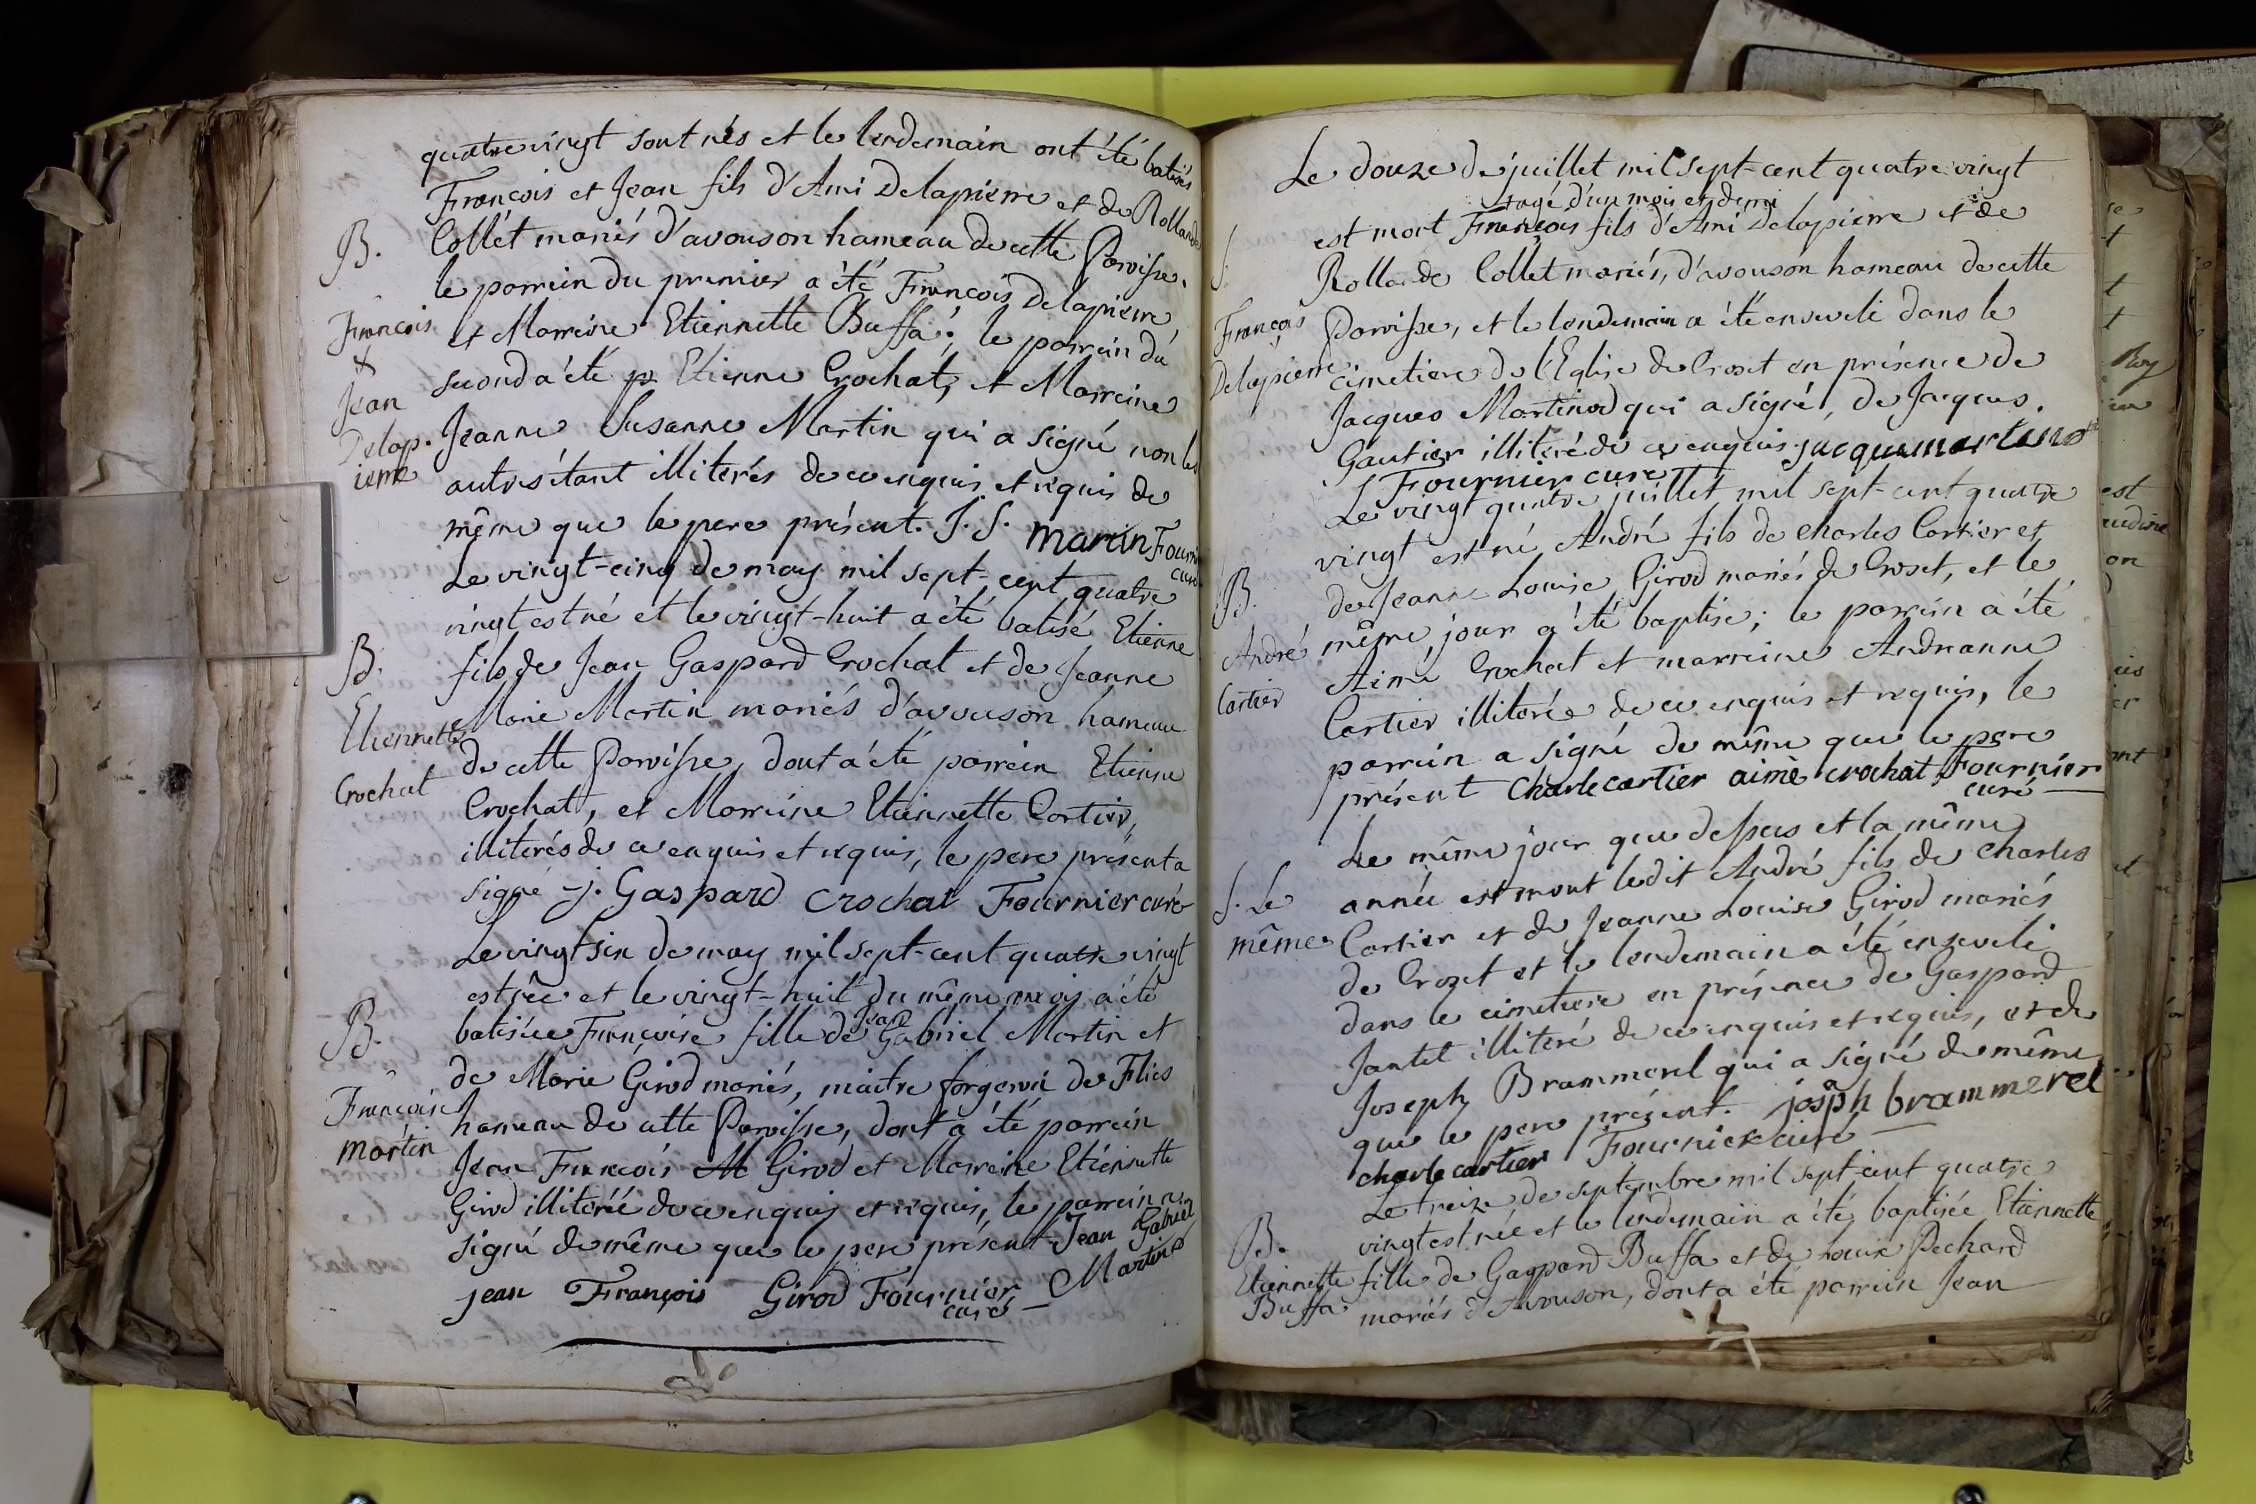 quatre vingt sont nés et le lendemain ont été batisés
François et Jean fils d'Ami Delapierre et de Rollande
B.
Collet mariés d'avouson hameau de cette Paroisse.
le parrein du premier a été François Delapierre
François
&
Jean
Delap.
ierre
et Marreine Etiennette Buffa; le parrein du
second a été p Etienne Crochat, et Marreine
Jeanne Susanne Martin qui a signé non les
autres étant illiterés de ce enquis et requis de
même que le pere présent. J. S. martin Fournier
curé
Le vingt-cinq de may mil sept-cent quatre
vingt est né et le vingt-huit a été batisé Etienne
B.
Etiennette
Crochat
fils de Jean Gaspard Crochat et de Jeanne
Marie Martin mariés d'avouson hameau
de cette Paroisse, dont a été parrein Etienne
Crochat, et Marreine Etiennette Cartier,
illiterés de ce enquis et requis, le pere présent a
signé j. Gaspard Crochat Fournier curé
Le vingt six de may mil sept-cent quatre vingt
est née et le vingt-huit du même mois a été
B.
Françoise
martin
batisée Françoise fille de Jean Gabriel Martin et
de Marie Girod mariés, maitre forgeron de Flies
hameau de cette Paroisse, dont a été parrein
Jean François M Girod et Marreine Etiennette
Girod illiterée de ce enquis et requis, le parrein a
signé de même que le pere présent Jean Gabriel
Martin
jean François Girod Fournier
curé
Le douze de juillet mil sept-cent quatre vingt
agé d'un mois et demi
est mort François fils d'Ami Delapierre et de
S.
François
Delapierre
Rollande Collet mariés, d'avouson hameau de cette
Paroisse, et le lendemain a été enseveli dans le
cimetiere de l'Eglise de Croset en présence de
Jacques Martinod qui a signé, de Jacques
Gautier illiteré de ce enquis. jacque martinod
Fournier curé
Le vingt quatre juillet mil sept-cent quatre
vingt est né André fils de charles Cartier et
B.
André
Cartier
de Jeanne Louise Girod mariés de Croset, et le
même jour a été baptisé; le parrein a été
Aimé Crochat et marreine Andrianne
Cartier illiterée de ce enquis et requis, le
parrein a signé de même que le pere
présent Charle cartier aimé crochat Fournier
curé
Le même jour que dessus et la même
S. Le
même
année est mort ledit André fils de Charles
Cartier et de Jeanne Louise Girod mariés
de Crozet et le lendemain a été enseveli
dans le cimetiere en présence de Gaspard
Jantet illiteré de ce enquis et requis, et de
Joseph Brammerel qui a signé de même
que le pere présent. josph brammerel
charle cartier Fournier curé
Le treize de septembre mil sept-cent quatre
vingt est née et le lendemain a été baptisée Etiennette
B.
Etiennette
Buffa
fille de Gaspard Buffa et de Louise Pechard
mariés d'Avouson, dont a été parrein Jean